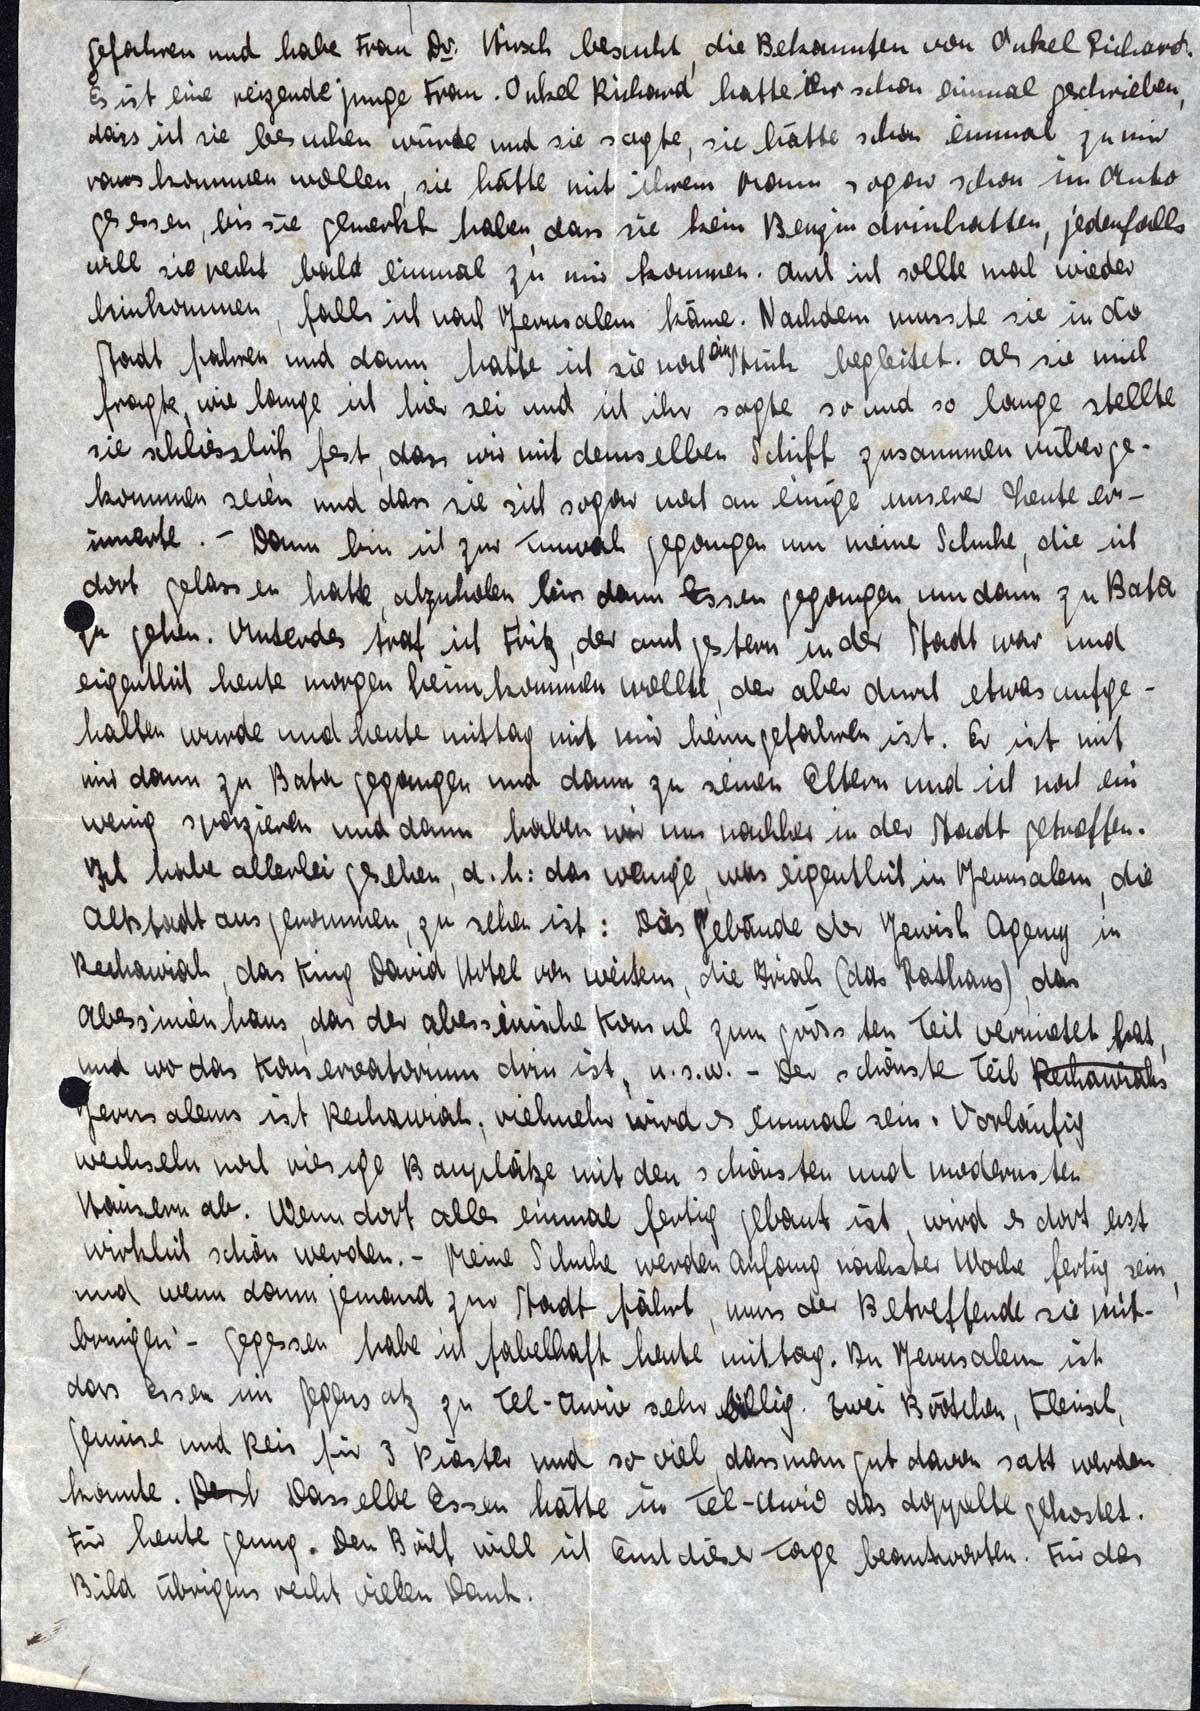 gefahren und habe Frau Dr. Hirsch besucht, die Bekannten von Onkel Richard.
Es ist eine reizende junge Frau. Onkel Richard hatte ihr schon einmal geschrieben,
dass ich sie besuchen würde und sie sagte, sie hätte schon einmal zu mir
rauskommen wollen, sie hätte mit ihrem Mann sogar schon im Auto
gesessen, bis sie gemerkt haben, dass sie kein Benzin drinhatten, jedenfalls
will sie recht bald einmal zu mir kommen. Auch ich sollte mal wieder
hinkommen, falls ich nach Jerusalem käme. Nachdem musste sie in die
Stadt fahren und dann hatte ich sie noch ein Stück begleitet. Als sie mich
fragte, wie lange ich hier sei und ich ihr sagte so und so lange stellte
sie schliesslich fest, dass wir mit demselben Schiff zusammen rüberge-
kommen seien und dass sie sich sogar noch an einige unserer Leute er-
innerte. - Dann bin ich zur gegangen um meine Schuhe, die ich
dort gelassen hatte, abzuholen bin dann Essen gegangen um dann zu Bata
zu gehen. Unterdes traf ich Fritz, der auch gestern in der Stadt war und
eigentlich heute morgen heimkommen wollte, der aber durch etwas aufge-
halten wurde und heute mittag mit mir heimgefahren ist. Er ist mit
mir dann zu Bata gegangen und dann zu seinen Eltern und ich noch ein
wenig spazieren und dann haben wir uns nachher in der Stadt getroffen.
Ich habe allerlei gesehen, d.h: das wenige, was eigentlich in Jerusalem, die
Altstadt ausgenommen, zu sehen ist: Das Gebäude der Jewish Agency in
Rechawiah, das King David Hotel von weitem, die Iriah (das Rathaus), das
Abessinienhaus, das der abessinische Konsul zum grössten Teil vermietet hat,
und wo das Konservatorium drin ist, u.s.w. - Der schönste Teil Rechawiahs
Jerusalems ist Rechawiah, vielmehr wird es einmal sein. Vorläufig
wechseln noch riesige Bauplätze mit den schönsten und modernsten
Häusern ab. Wenn dort alles einmal fertig gebaut ist, wird es dort erst
wirklich schön werden. - Meine Schuhe werden Anfang nächster Woche fertig sein,
und wenn dann jemand zur Stadt fährt, muss der Betreffende sie mit-
bringen - Gegessen habe ich fabelhaft heute mittag. In Jerusalem ist
das Essen im Gegensatz zu Tel-Awiw sehr billig. Zwei Brötchen, Fleisch,
Gemüse und Reis für 3 Piaster und so viel, dass man gut davon satt werden
konnte. Dasselbe Essen hätte in Tel-Awiw das doppelte gekostet.
Für heute genug. Den Brief will ich Euch dieser Tage beantworten. Für das
Bild übrigens recht vielen Dank.